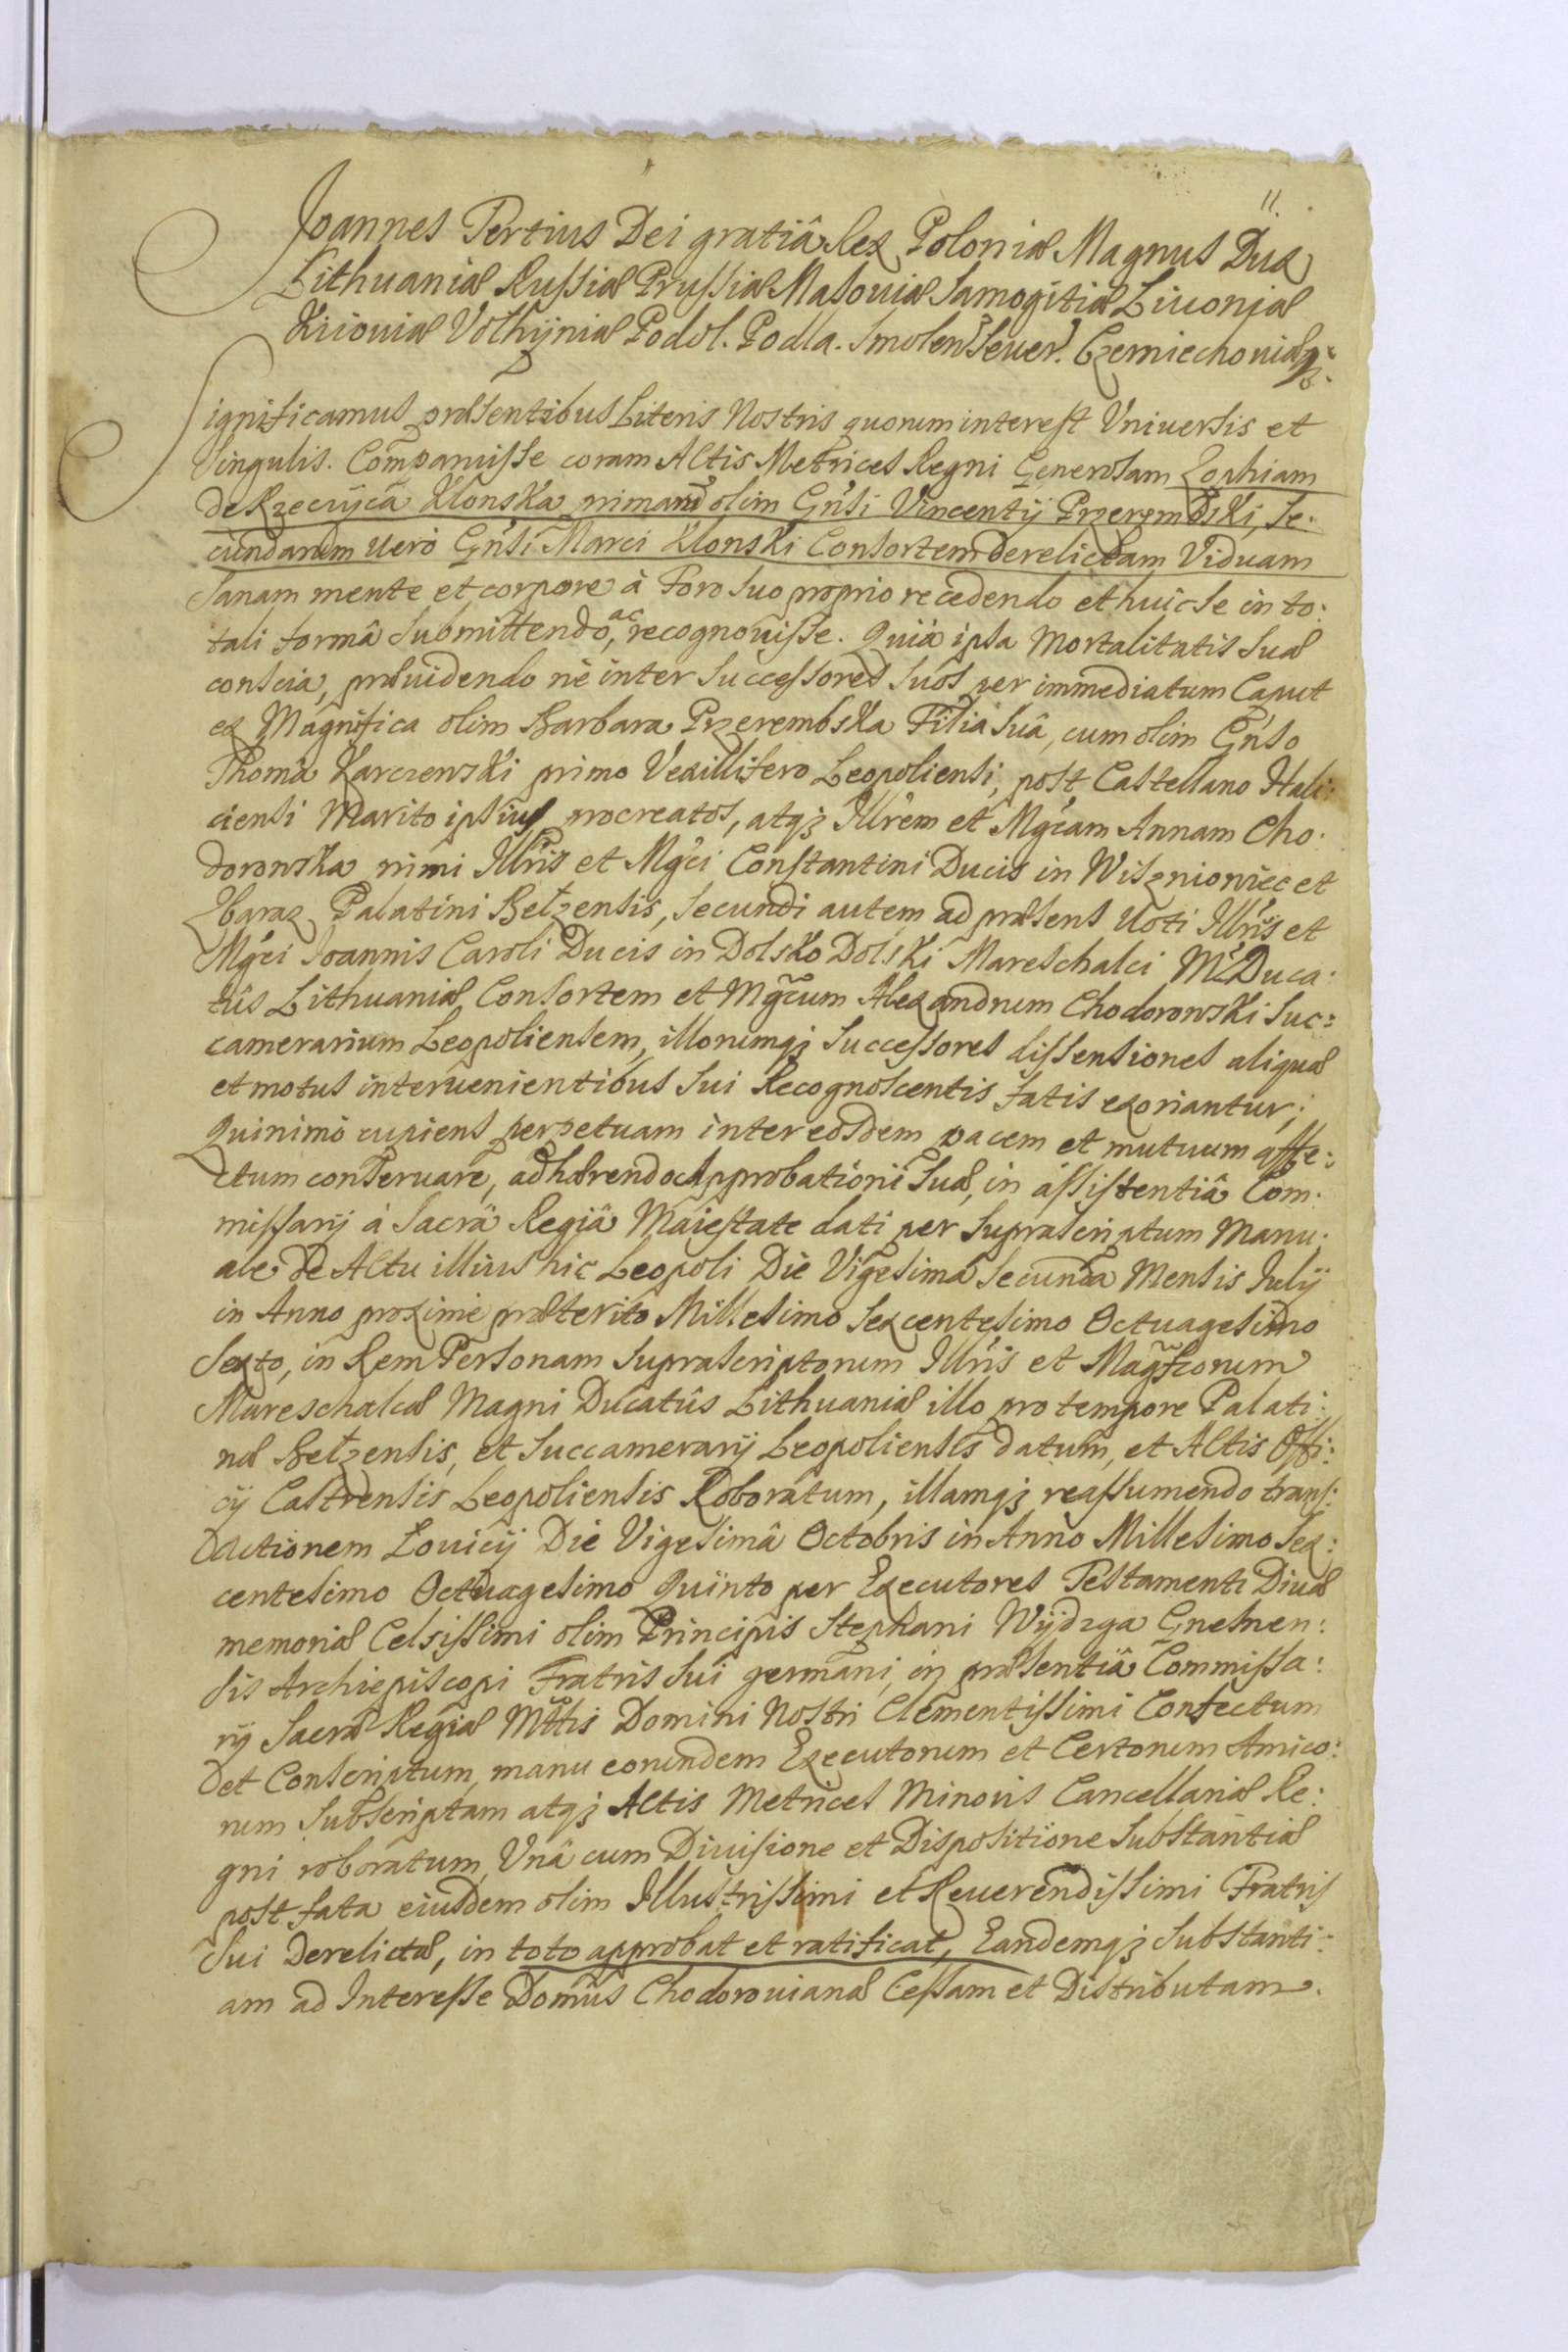 11.
Joannes Tertius Dei gratiâ Rex Poloniæ Magnus Dux
Lithuaniæ Russiæ Prussiæ Masouiæ Samogitiæ Liuoniæ
Kiiouiæ Volhÿniæ Podol. Podla. Smolen Seuer. Czerniechouiæq;
Significamus præsentibus Literis Nostris quorum interest Vniuersis et
Singulis. Comparuisse coram Actis Metrices Regni Generosam Zophiam
de Rzeczÿca Klonska primam olim Gnsi Vincentÿ Przerembski, Se:
cundarum vero Gnsi Marci Klonski Consortem derelictam Viduam
Sanam mente et corpore à Foro suo proprio recedendo et huic se in to:
tali formâ submittendo, ac recognouisse. Quia ipsa Mortalitatis suæ
conscia, præuidendo nè inter Successores suos per immediatum Caput
ex Magnifica olim Barbara Przerembska Filia suâ, cum olim Gnso
Thoma Karczewski primo Vexillifero Leopoliensi, post Castellano Hali:
ciensi Marito ipsius procreatos, atqz Illrem et Mgcam Annam Cho:
dorowska primi Illris et Mgci Constantini Ducis in Wiszniowiec et
Zbaraz Palatini Belzensis, Secundi autem ad præsens Uoti Illris et
Mgci Joannis Caroli Ducis in Dolsko Dolski Mareschalci M. Duca:
tûs Lithuaniæ Consortem et Mgcum Alexandrum Chodorowski Suc:
camerarium Leopoliensem, illorumqz Successores dissensiones aliquæ
et motus interuenientibus sui Recognoscentis fatis exoriantur;
Quinimò cupiens perpetuam inter eosdem pacem et mutuum affe:
ctum conseruare, adhærendo Approbationi suæ, in assistentiâ Com:
missarij à Sacrâ Regiâ Maiestate dati per Suprascriptum Manu:
ale de Actu illius hic Leopoli Die Vigesima Secunda Mensis Julij
in Anno proximè præterito Millesimo Sexcentesimo Octuagesimo
Sexto, in Rem Personam Suprascriptorum Illris et Magcorum
Mareschalcæ Magni Ducatûs Lithuaniæ illo pro tempore Palati:
næ Belzensis, et Succamerarij Leopoliensis datum, et Actis Offi:
cij Castrensis Leopoliensis Roboratum, illamqz reassumendo trans:
actionem Louicij Die Vigesimâ Octobris in Anno Millesimo Sex:
centesimo Octuagesimo Quinto per Executores Testamenti Diuæ
memoriæ Celsissimi olim Principis Stephani Wÿdzga Gnesnen:
sis Archiepiscopi Fratris sui germani, in præsentiâ Commissa:
rij Sacræ Regiæ Mttis Domini Nostri Clementissimi Confectum
et Conscriptum, manu eorundem Executorum et Certorum Amico:
rum Subscriptam atqz Actis Metrices Minoris Cancellariæ Re:
gni roboratum, Vnâ cum Diuisione et Dispositione Substantiæ
post fata eiusdem olim Illustrissimi et Reuerendissimi Fratris
Sui Derelictæ, in toto approbat et ratificat, Eandemqz Substanti:
am ad Interesse Domûs Chodorouianæ Cessam et Distributam.